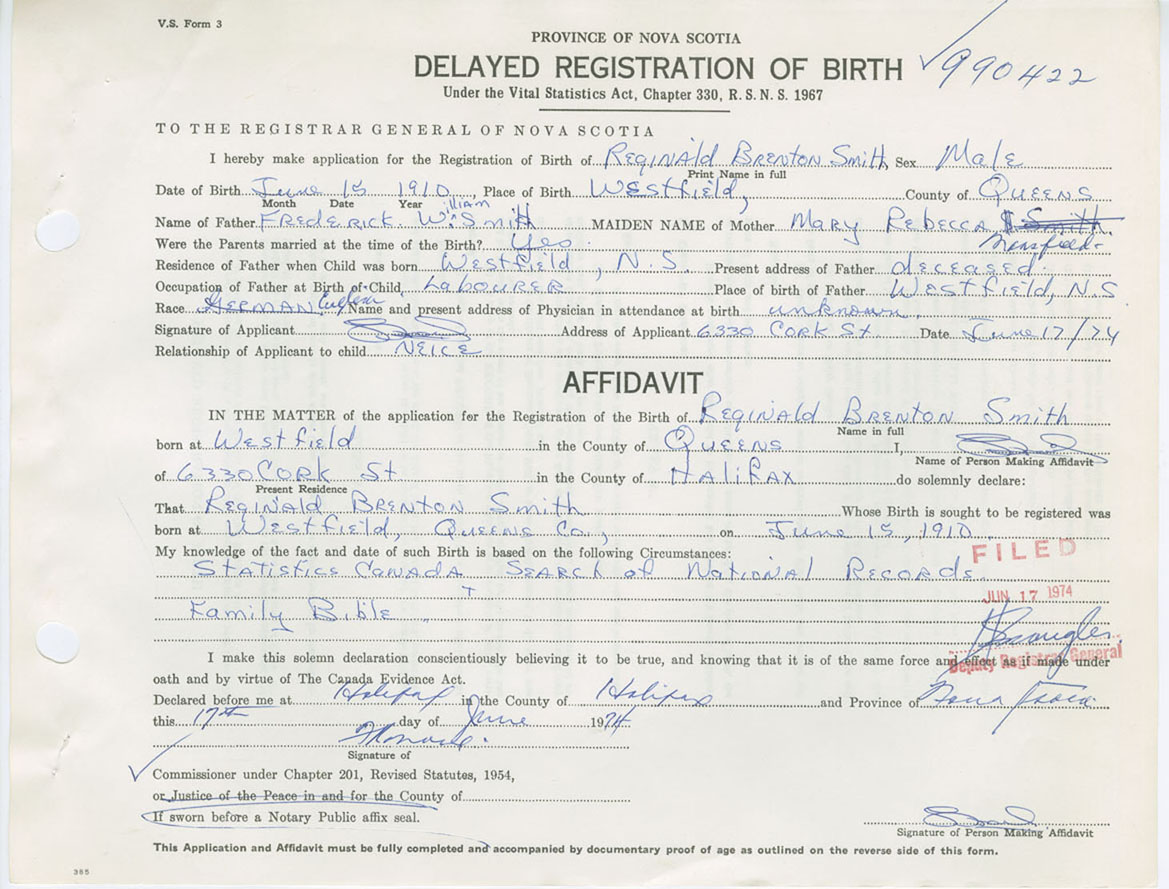 V.S. Form 3
990422
PROVINCE OF NOVA SCOTIA
DELAYED REGISTRATION OF BIRTH
Under the Vital Statistics Act, Chapter 330, R.S.N.S. 1967
TO THE REGISTRAR GENERAL OF NOVA SCOTIA
I hereby make application for the Registration of Birth of Reginald Brenton Smith, Sex Male
Print Name in full
Date of Birth June 15 1910, Place of Birth Westfield, County of Queens
Month Date Year
Name of Father Frederick William Smith MAIDEN NAME of Mother Mary Rebecca Smith
Mansfield
Were the Parents married at the time of the Birth? Yes.
Residence of Father when Child was born Westfield, N.S. Present address of Father deceased.
Occupation of Father at Birth of Child, Labourer Place of birth of Father Westfield, N.S
Race German English Name and present address of Physician in attendance at birth unknown.
Signature of Applicant Address of Applicant 6330 Cork St. Date June 17/74
Relationship of Applicant to child NEICE
AFFIDAVIT
IN THE MATTER of the application for the Registration of the Birth of Reginald Brenton Smith
Name in full
born at Westfield in the County of Queens I,
Name of Person Making Affidavit
of 6330 Cork St in the County of Halifax do solemnly declare:
Present Residence
That Reginald Brenton Smith Whose Birth is sought to be registered was
born at Westfield, Queens Co., on June 15, 1910
My knowledge of the fact and date of such Birth is based on the following Circumstances:
FILED
Statistics Canada Search of National Records.
JUN 17 1974
Family Bible
Deputy Registrar General
I make this solemn declaration conscientiously believing it to be true, and knowing that it is of the same force and effect as if made under
oath and by virtue of The Canada Evidence Act.
Declared before me at Halifax in the County of Halifax and Province of Nova Scotia
this 17th day of June 1974
Signature of
Commissioner under Chapter 201, Revised Statutes, 1954,
or Justice of the Peace in and for the County of
If sworn before a Notary Public affix seal.
Signature of Person Making Affidavit
This Application and Affidavit must be fully completed and accompanied by documentary proof of age as outlined on the reverse side of this form.
385